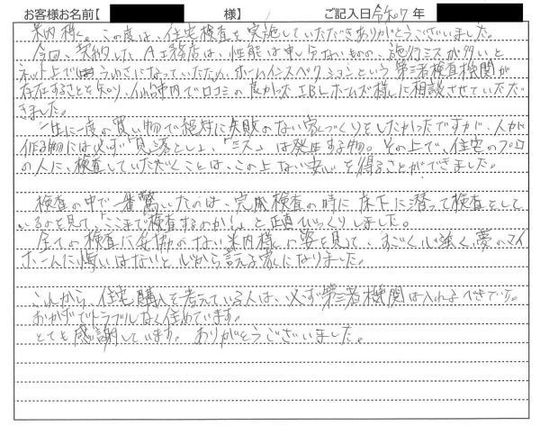 お客様お名前【 様】 ご記入日 令和7年
米内様。この度は、住宅検査を実施していただきありがとうございました。
今回、契約した、A工務店は、性能は申し分ないものの、施行ミスが多いと
ネット上でうわさになっていたため、ホームインスペクションという第三者検査機関が
存在することを知り、仙台市内で口コミの良かったIBLホームズ様に相談させていただ
きました。
一生に一度の買い物で絶対に失敗のない家づくりをしたかったですが、人が
作る物には必ず「見落とし」、「ミス」は発生する物。その上で、住宅のプロ
の人に、検査していただくことは、この上ない安心を得ることができました。
検査の中で一番驚いたのは、完成検査の時に床下に潜って検査をして
いるのを見て、「ここまで検査するのか!」と正直びっくりしました。
全ての検査に妥協のない米内様の姿を見て、すごく心強く、夢のマイ
ホームに悔いはないと心から言える家になりました。
これから、住宅購入を考えている人は、必ず第三者機関は入れるべきです。
おかげでトラブルなく住めています。
とても感謝しています。ありがとうございました。